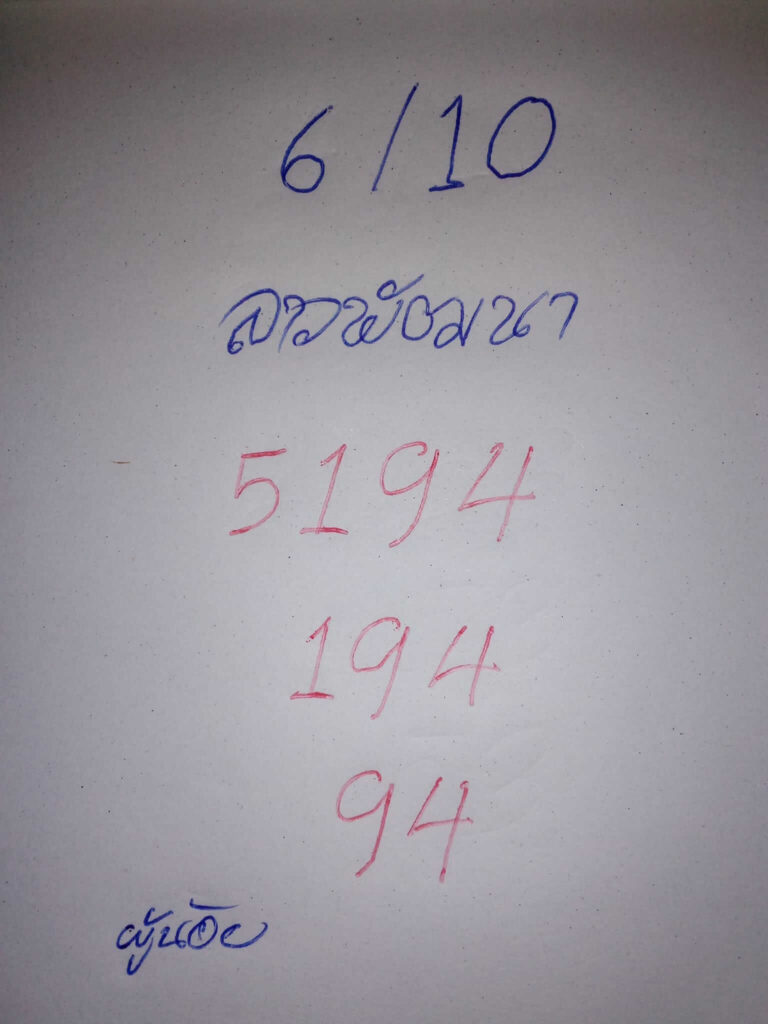 6/10
ลาวพัฒนา
5194
194
94
ผู้น้อย